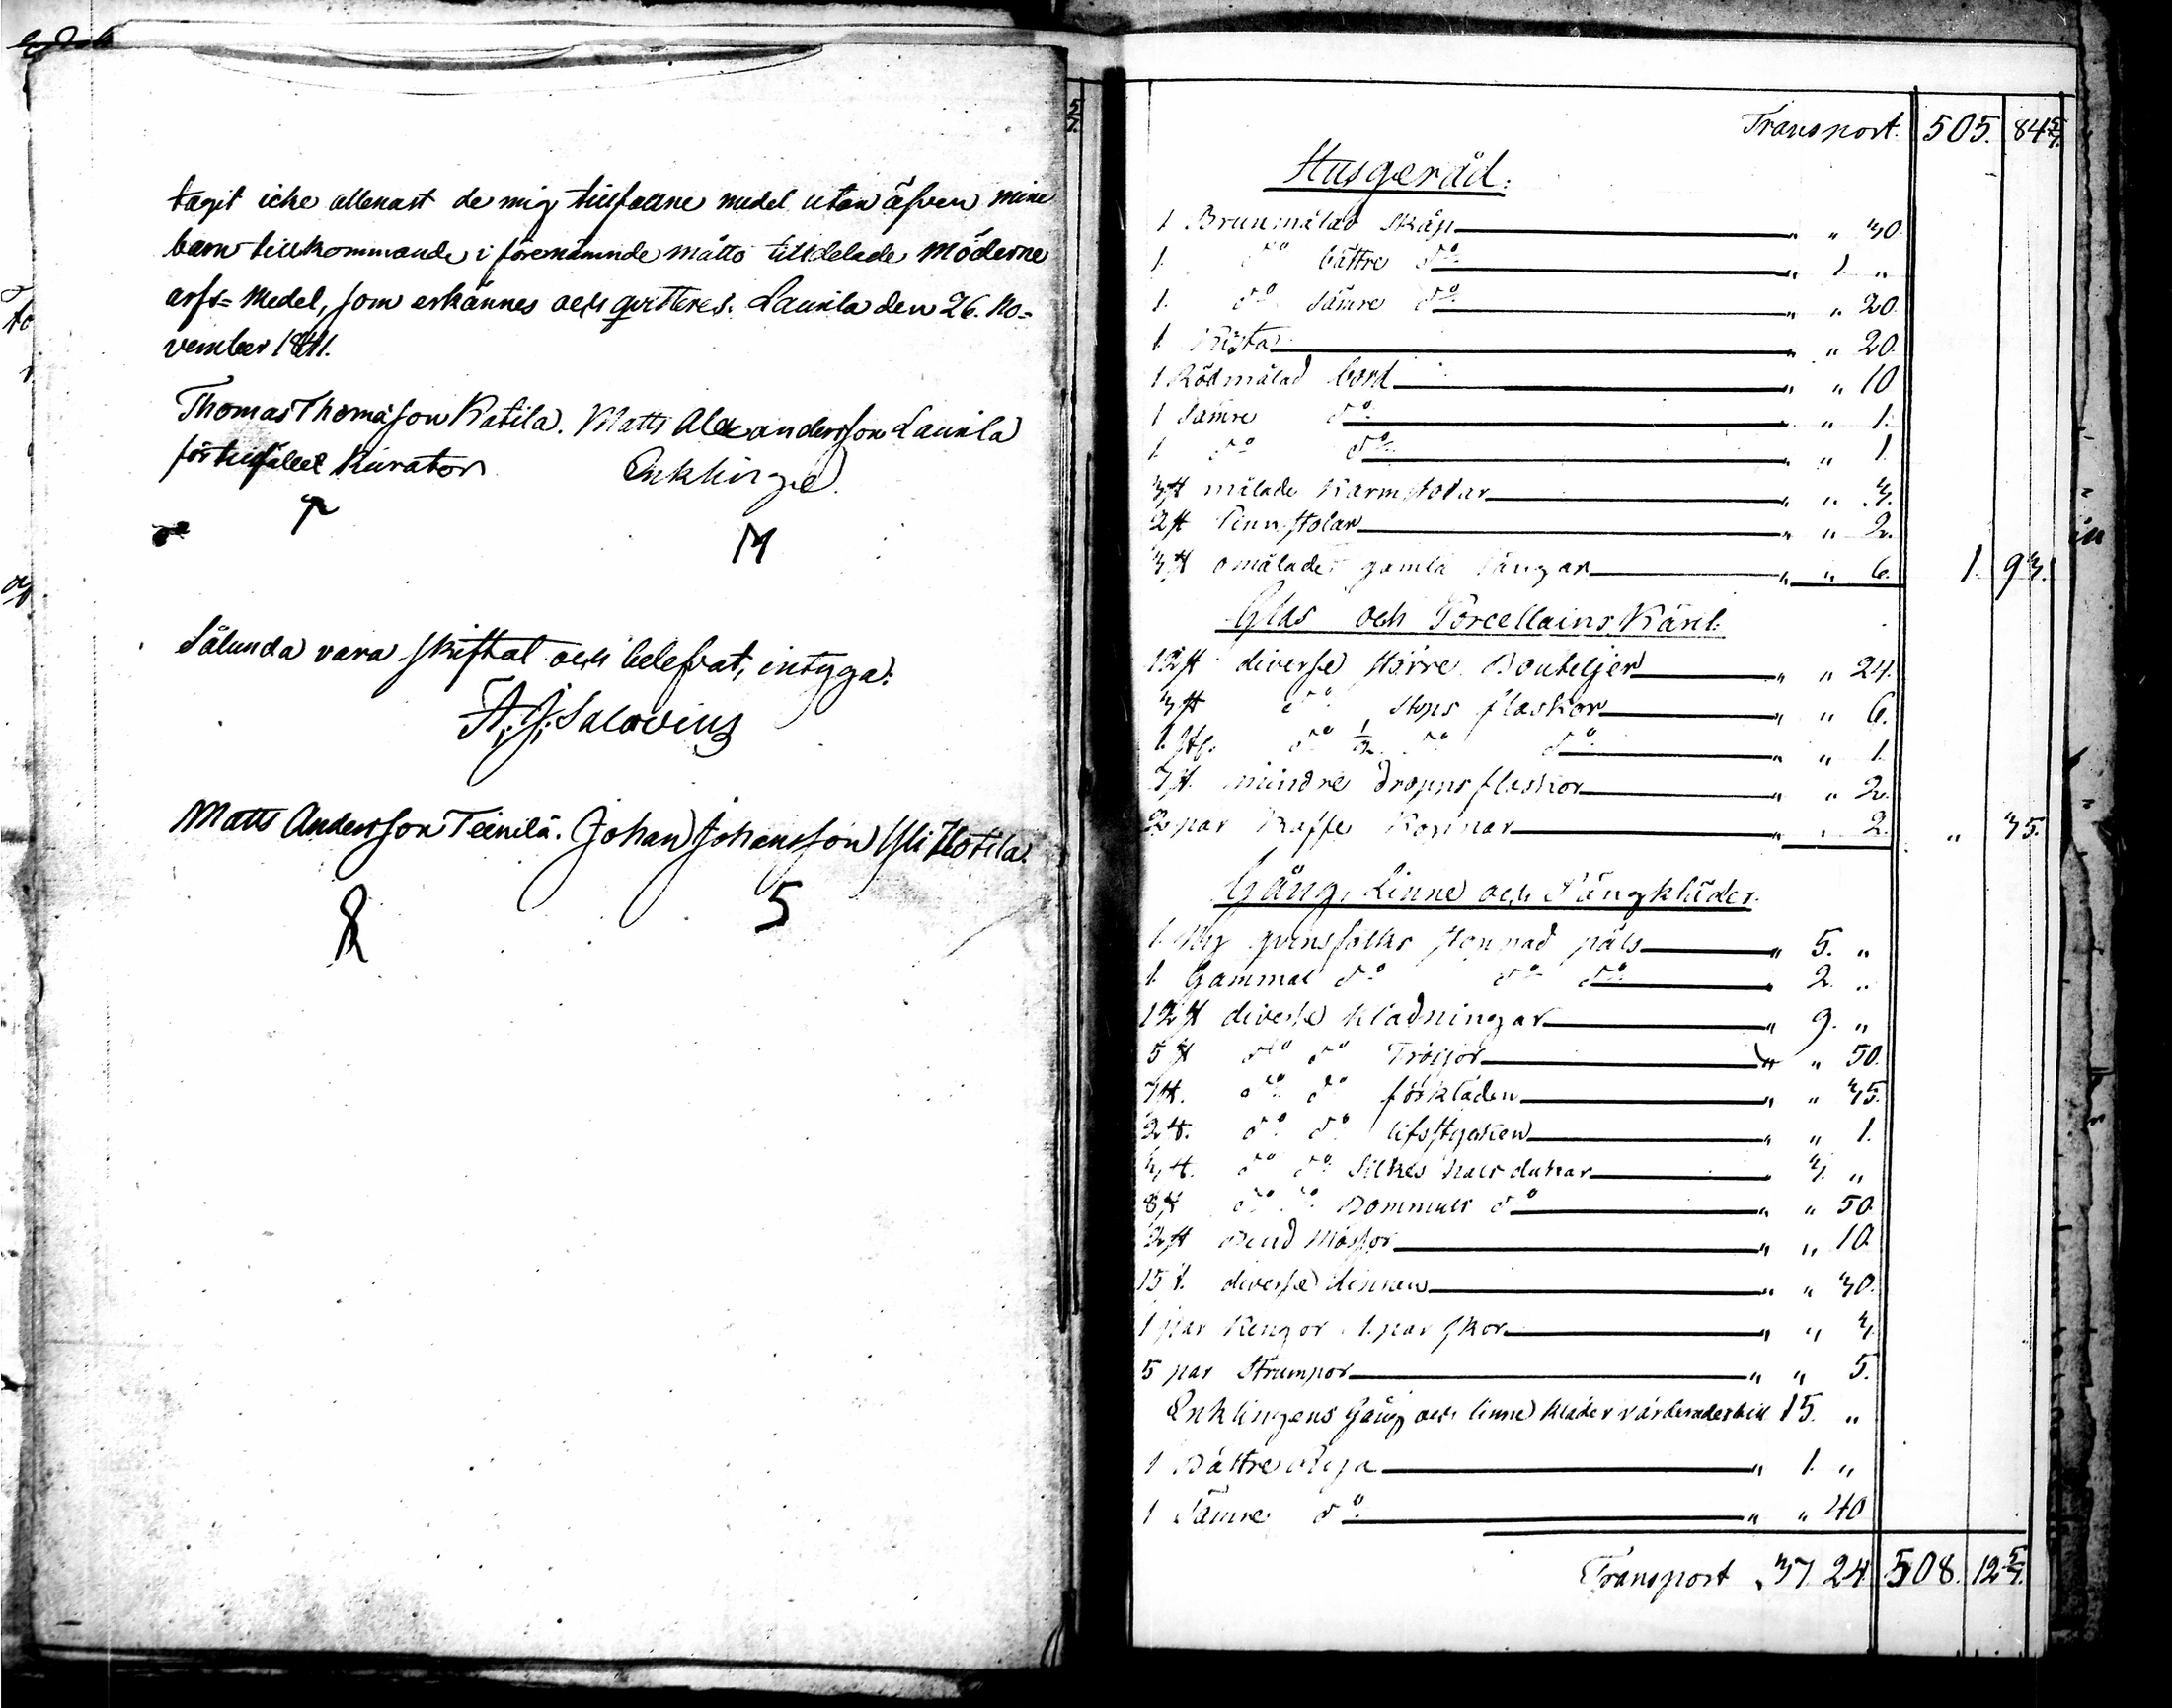 tagit icke allenast de mig tillfallne medel utan äfven mine
barn tillkommande i förenämnde måtto tilldelade Möderne
arfs= Medel, som erkännes och qvitteres. Laurila den 26. No=
vember 1841.
Thomas Thomasson Katila. Matts Alexandersson Laurila
för tillfället Kurator Enklinge
M
Sålunda vara skiftat och belefvat, intyga:
A. J. Salovius
Matts Andersson Teinilä. Johan Johansson Yli Hotila.
5
Transport. 505. 84 5/7.
Husgeråd:
1 Brunmålad Skåp " " 30.
1. do bättre do " 1. "
1. do Sämre do " " 20.
1. Kista " " 20.
1 Rödmålad bord " " 10
1 Sämre do " " 1.
1. do do " " 1.
3 st målade Karmstolar " " 3.
2 st Pinnstolar " " 2.
3 st omålade gamla Sängar " " 6. 1. 93.
Glas och Porcellains Käril.
12 st diverse större Bouteljer " " 24.
3 st do Stops flaskor " " 6.
1. st. do 1/2 do do " " 1.
7 st. mindre Dropps flaskor " " 2.
2 par Kaffe Koppar " " 2. " 35.
Gång, Linne och Sängkläder.
1. Ny qvinsfolks stoppad päls " 5. "
1. Gammal do do do " 2. "
12 st diverse Klädningar " 9. "
5 st do do Tröijor " " 50.
7 st. do do förkläden " " 35.
2 st. do do lifstycken " " 1.
3 st. do do Silkes halsdukar " 3. "
8 st do do Bommuls do " " 50.
2 st Bind Mössor " " 10.
15 st. diverse Linnen " " 30.
1 par Kengor 1. par Skor " " 3.
5 par Strumpor " " 5.
Enklingens Gång och linne Kläder värderades till 15. "
1 Bättre Ryja " 1. "
1 Sämre do " " 40
Transport 37. 24. 508. 12 5/7.